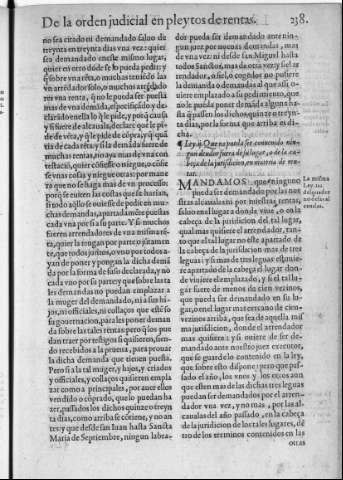 De la orden judicial en pleytos de rentas. 238.
no sea citado ni demandado saluo de
treynta en treynta dias vna vez: quier
sea demandado en este mismo lugar,
quier en otro donde se lo pueda pedir: y
sobre vna reta, o muchas
vn arrēdador solo, o muchos
rē vna renta, q̄ no le pueda ser puesta
mas de vna demāda, especificādo y de-
clarādo en ella lo q̄ le pide, y por q̄ causa
y si fuere de alcauala, declare que le pi-
de de vēta, y q̄ le pide de cōpra, y q̄ quā
tia de cada rēta, y si la demanda fuere de
muchas rentas, no aya mas de vna con
testacion, quier cōfiesse o niegue, o cōfie
sse vnas cosas y niegue otras: por mane
ra que no se haga mas de vn processo:
porq̄ se euiten las costas que se harian,
si todo aq̄llo se ouiesse de pedir en mu-
chas demandas, apartadamēte puestas
cada vna por si a su parte. Y si muchos
fueren arrendadores de vna misma rē-
ta, quier la tengan por partes o juntamen
te, que todos juntos, o vno por todos a-
yan de poner y pongan la dicha demā
da por la forma de suso declarada, y no
cada vno por su parte: y que sobre las ta
les demandas no puedan emplazar a
la muger del demandado, ni a sus hi-
jos, ni officiales, ni collaços que estē so
su gouernacion, para les poner deman-
da sobre las tales rentas pero q̄ los pue
dan traer por testigos si quisieren, sien-
do recebidos a la prueua, para prouar
la dicha demanda que tienen puesta.
Pero si a la tal muger, y hijos, y criados
y officiales, y collaços quisieren empla
zar como a principales, por auer ellos
vendido o cōprado, que lo puedan ha-
zer, passados los dichos quinze o treyn
ta dias, como arriba se cōtiene, y no an-
tes y que desde san Iuan hasta Sancta
Maria de Septiembre, ningun labra-
dor pueda ser demandado ante nin-
gun juez por nuestras rentas, mas
de vna vez, ni desde san Miguel hasta
todos Sanctos, mas de otra vez: y si el ar
rendador, o fiel, o cogedor no pusiere
la demanda o demandas al que assi o-
uiere emplazado a su pedimiento, que
no le pueda poner demāda alguna has-
ta passados los dichos quinze o treyn-
ta dias, por la forma que arriba es di-
cha.
¶ Ley. iij. Que no pueda ser conuenido nin-
gun deudor fuera de su lugar, o de la ca-
beça de la jurisdicion, en materia de ren-
tas.
MANDAMOS que ninguno
pueda ser demandado por las nue-
stras alcaualas ni por nuestras rentas,
saluo en el lugar donde viue, o en la
cabeça de la jurisdicion del tal lugar,
qual mas quisiere el arrendador, tan-
to que el tal lugar no este apartado de
la cabeça de la jurisdicion mas de tres
leguas: y si mas de tres leguas estuuie-
re apartado de la cabeça el lugar don-
de viuiere el emplazado, y si el tal lu-
gar fuere de menos de cien vezinos,
que pueda ser demandado en su lu-
gar, o en el lugar mas cercano de cien
vezinos arriba, que sea de aquella mis
ma jurisdicion, donde el arrendador
mas quisiere: y si ouiere de ser de-
mandado ante nuestro juez executor,
que se guarde lo contenido en la ley,
que sobre esto dispone: pero que pas-
sado el año, los vnos y los otros aun
que esten mas de las dichas tres leguas
puedan ser demandados por el arren-
dador vna vez, y no mas, por las al-
caualas del año passado, en la cabeça
de la jurisdicion de los tales lugares, dē
tro de los terminos contenidos en las
otras
La misma
Ley. 111
del quader
no de las al
caualas.